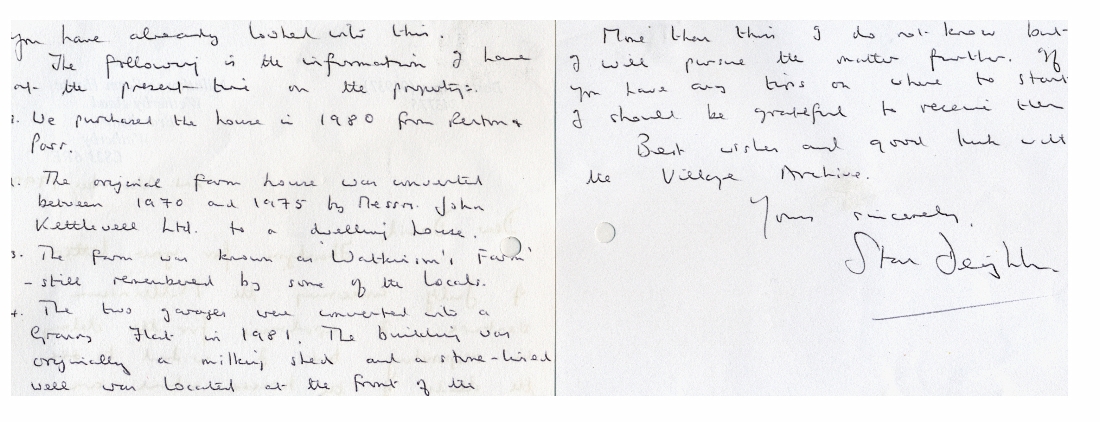 you have already looked into this.
The following is the information I have
at the present time on the property:
We purchased the house in 1980 from
Parr.
The original farm house was converted
between 1970 and 1975 by Messrs. John
Kettlewell Ltd. to a dwelling house.
3. The farm was known as Farm'
- still remembered by some of the locals.
4. The two garages were converted into a
Granny Flat in 1981. The building was
originally a milking shed and a stone-lined
well was located at the front of the
More than this I do not know but
I will pursue the matter further. If
you have any tips on where to start
I should be grateful to receive them
Best wishes and good luck with
the Village Archive.
Yours sincerely,
Stan